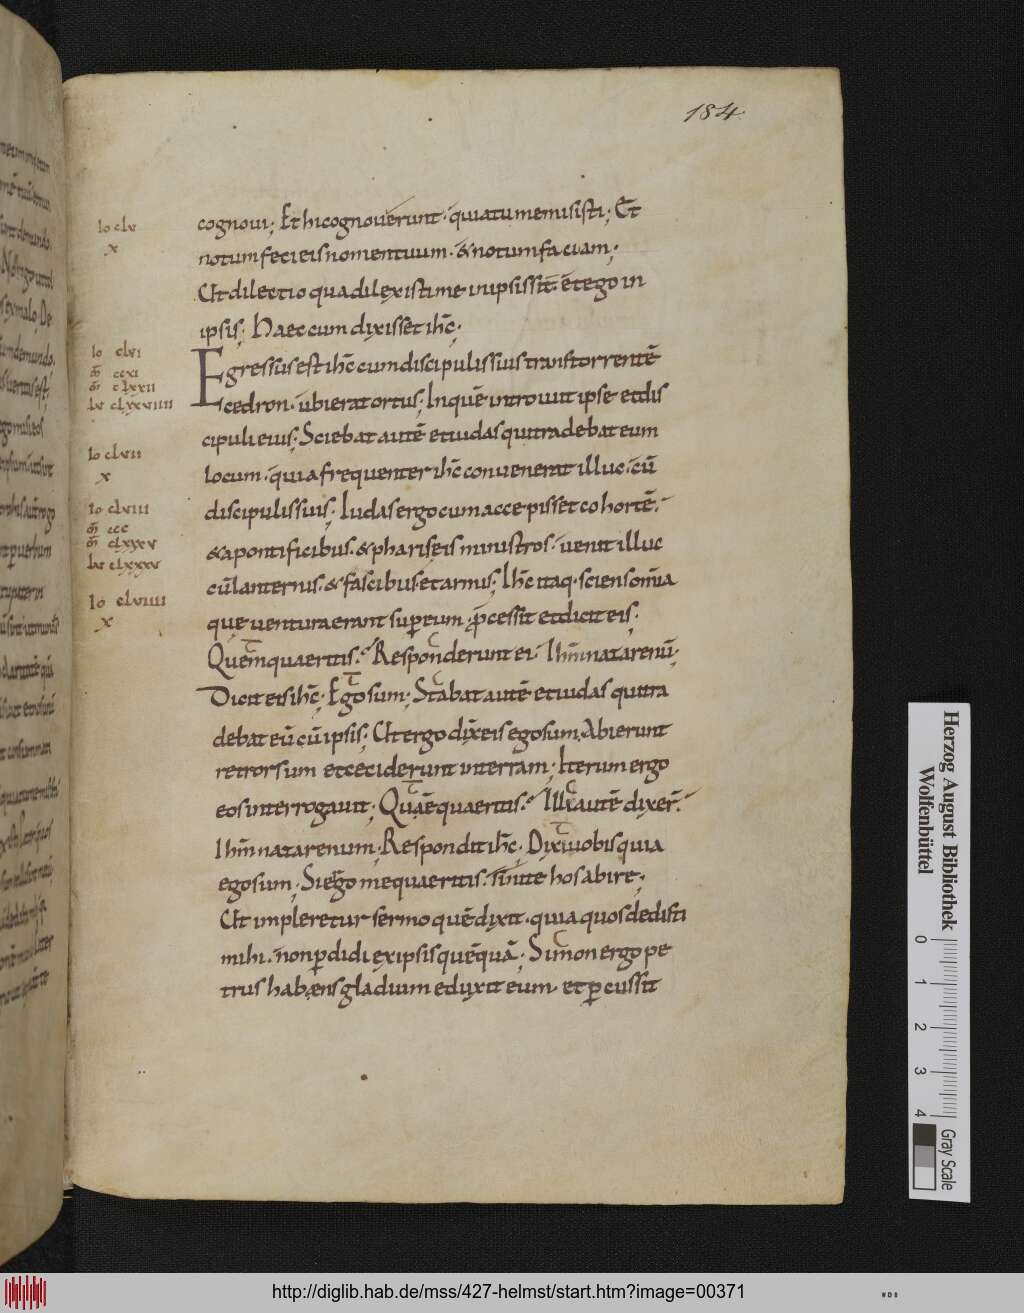 184
cognoui; Et hi cognouerunt. quia tu me misisti; Et
notum feci eis nomen tuum. & notum faciam;
Ut dilectio qua dilexisti me in ipsis sit. et ego in
ipsis; Haec cum dixisset ihc;
Egressus est ihc cum discipulis suis trans torrentē
cedron. ubi erat ortus; In quē introiuit ipse et dis
cipuli eius; Sciebat autē et iudas qui tradebat eum
locum. quia frequenter ihc conuenerat illuc. cū
discipulis suis; Iudas ergo cum accepisset cohortē.
& a pontificibus. & phariseis ministros. uenit illuc
cū lanternis. & fascibus et armis; Ihc itaq. sciens omia
que uentura erant sup eum. pcessit et dicit eis;
Quem quaeritis. Responderunt ei. Ihm nazarenū;
Dicit eis ihc; Ego sum; Stabat autē et iudas qui tra
debat eū cū ipsis; Ut ergo dixi eis ego sum. Abierunt
retrorsum et ceciderunt in terram; Iterum ergo
eos interrogauit; Quē quaeritis. Illi autē dixer.
Ihm nazarenum; Respondit ihc; Dixi uobis quia
ego sum; Si ego me quaeritis. sinite hos abire;
Ut impleretur sermo quē dixit. quia quos dedisti
mihi. non pdidi ex ipsis quēquā; Simon ergo pe
trus habens gladium eduxit eum. et percussit
Io clv
x
Io clvi
m ccxi
m clxxii
Lu clxxviiii
Io clvii
x
Io clviii
m ccc
m clxxxv
Lu clxxxv
Io clviiii
x
Herzog August Bibliothek
Wolfenbüttel
0 1 2 3 4
Gray Scale
http://diglib.hab.de/mss/427-helmst/start.htm?image=00371